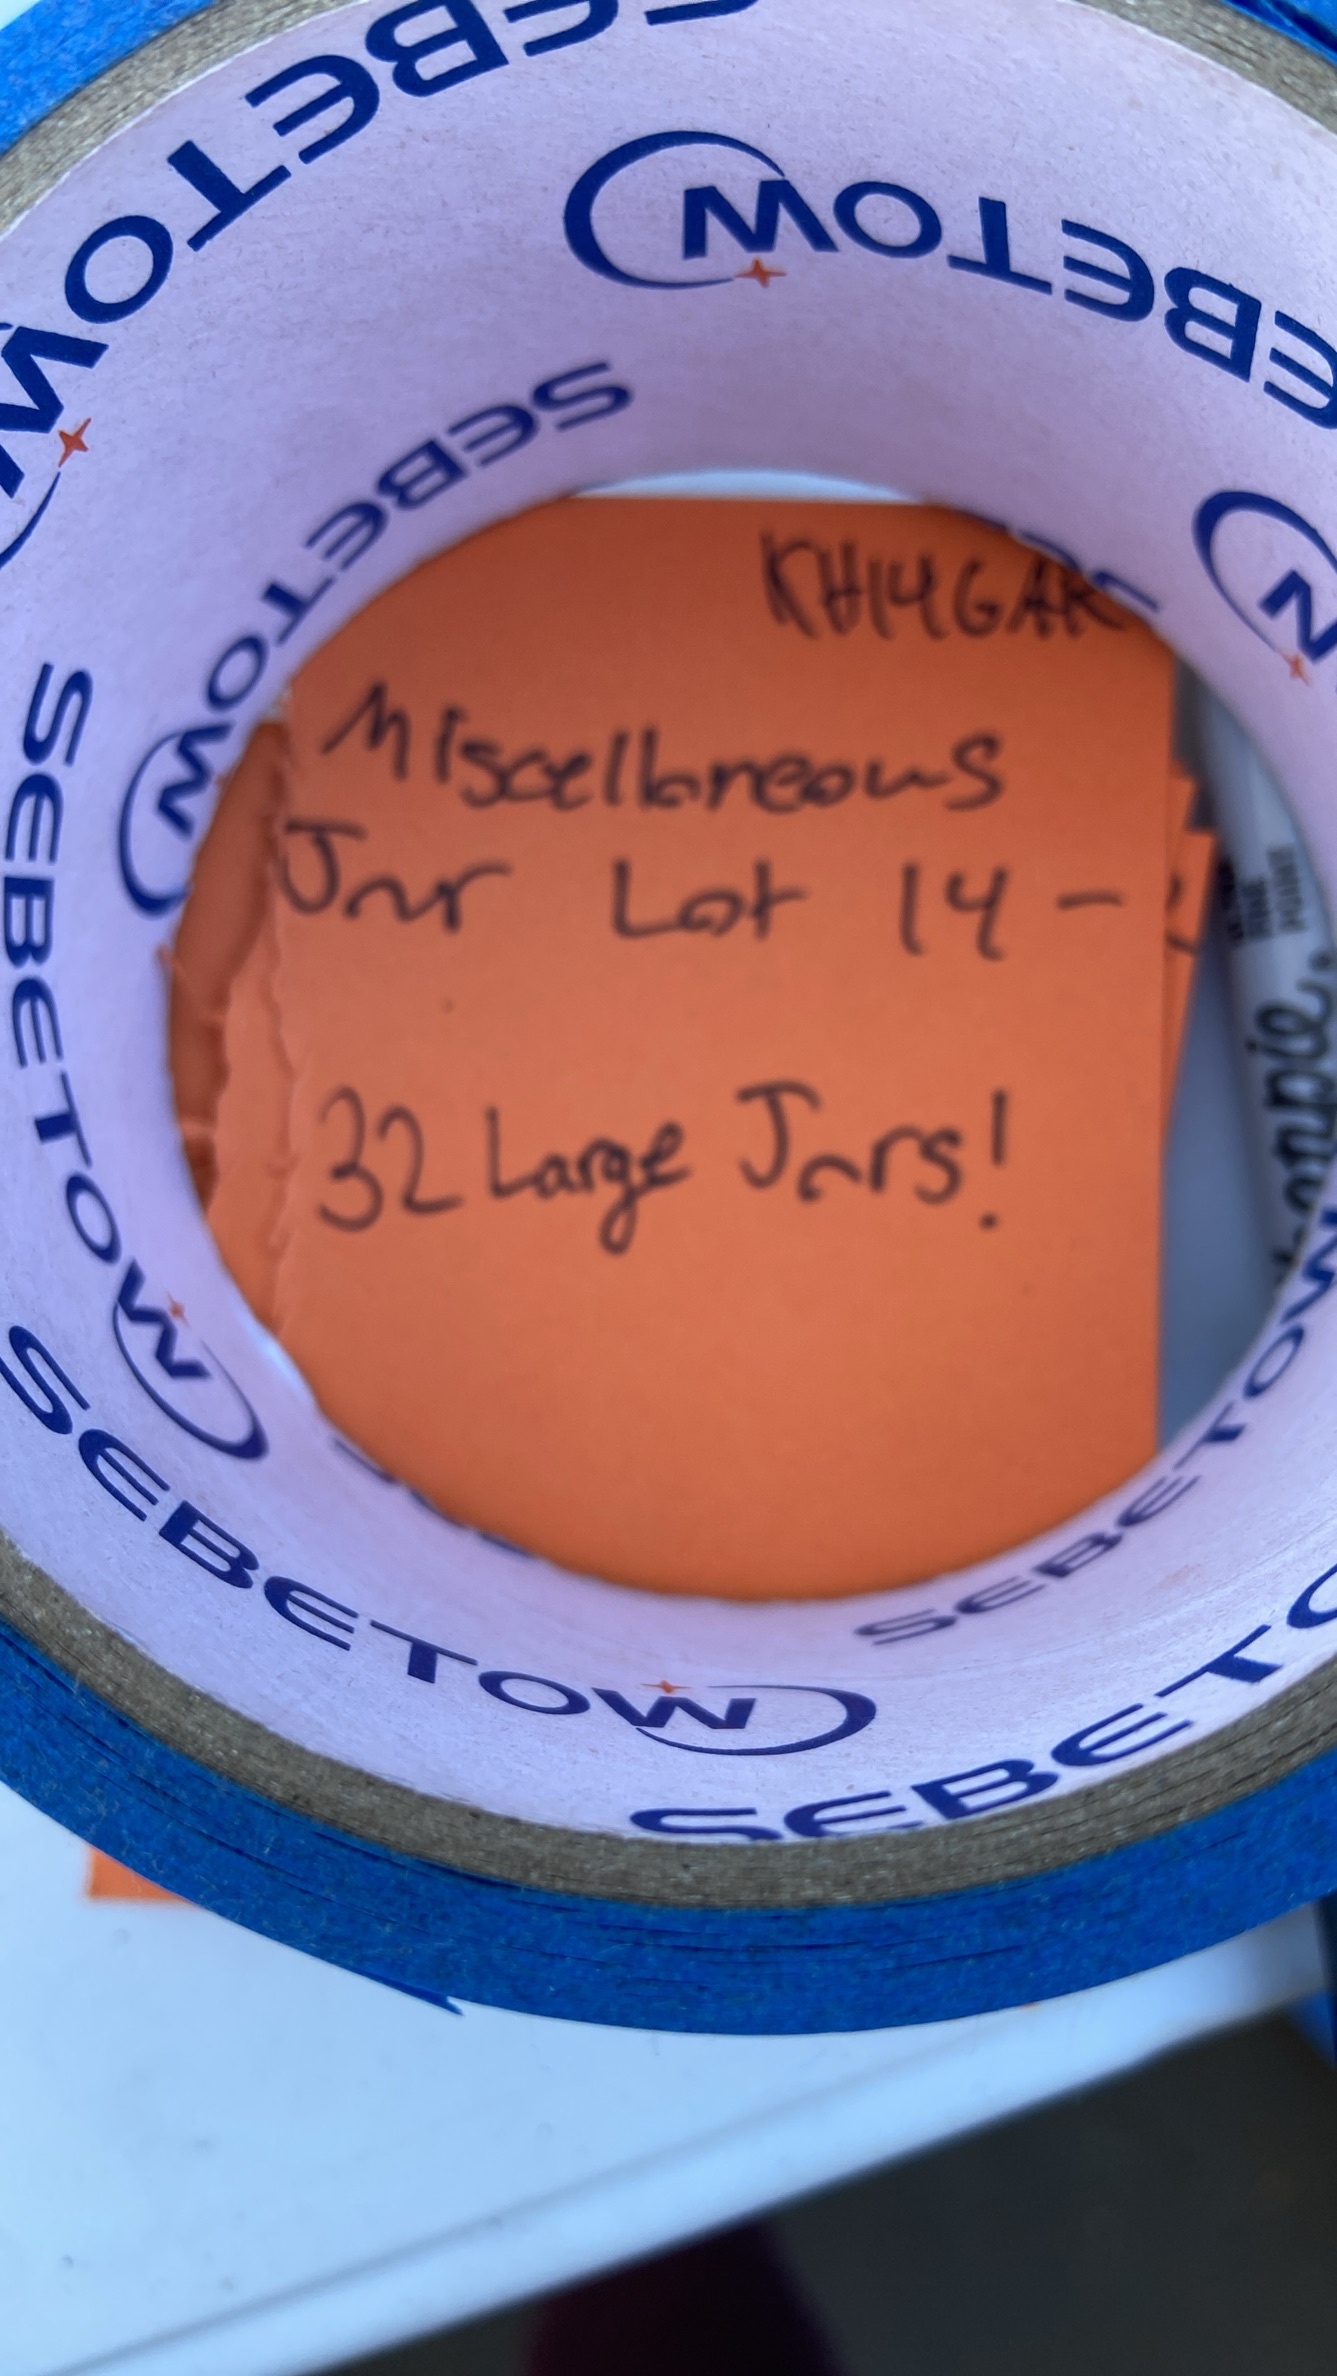 SEBETOW
EBETOW
SEBETOW
KH14GAR
Miscellaneous
Jar Lot 14 -
32 Large Jars!
FINE
POINT
SEBETOW
SEBETOW
SEBETOW
SEBETOW